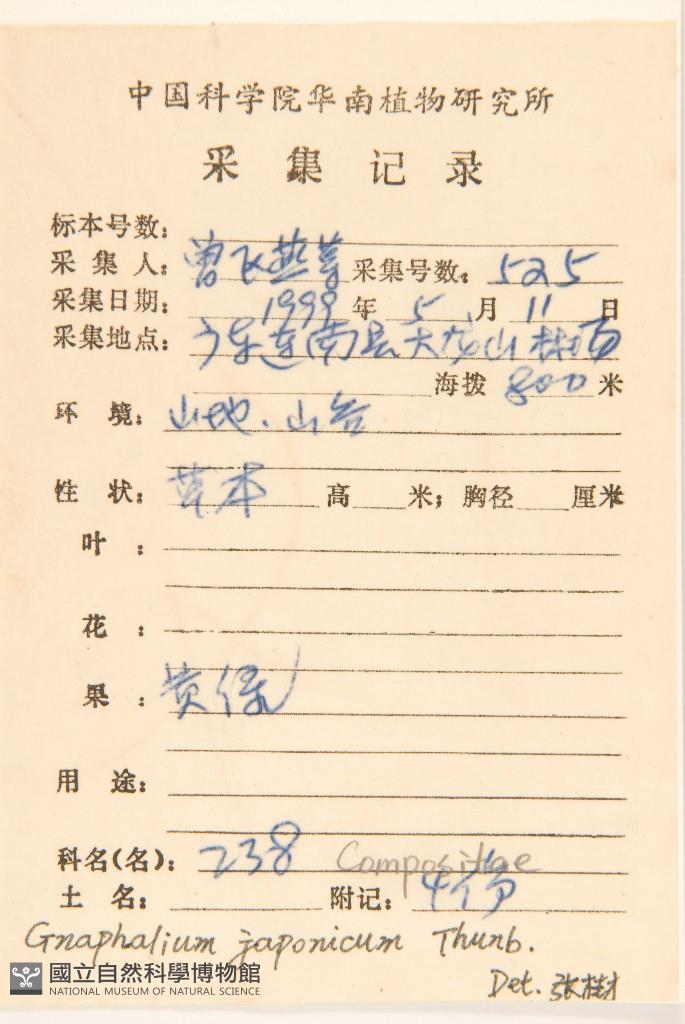 中国科学院华南植物研究所
采集记录
标本号数:
采集人: 曾飞燕等 采集号数: 525
采集日期: 1999 年 5 月 11 日
采集地点: 广东连南县大龙山林场
海拨 800 米
环境: 山地、山谷
性状: 草本 高 米; 胸径 厘米
叶:
花:
果: 黄绿
用途:
科名(名): 238 Compositae
土名: 附记: 4份
Gnaphalium japonicum Thunb.
Det. 张树
國立自然科學博物館
NATIONAL MUSEUM OF NATURAL SCIENCE